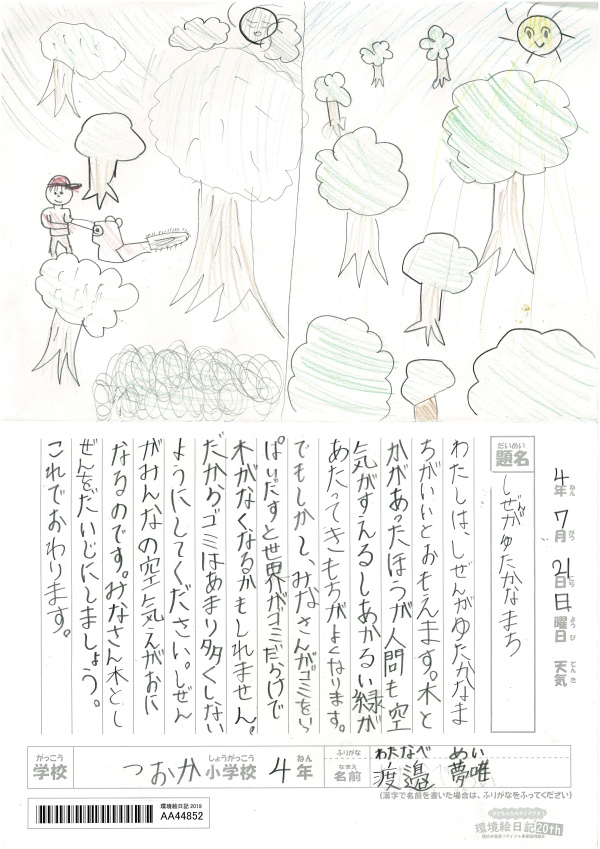 4年 7月 21日 日曜日 天気
ねん がつ にち ようび てんき
だいめい
題名
しぜんがゆたかなまち
わたしは、しぜんがゆたかなま
ちがいいとおもえます。木と
かがあったほうが人間も空
気がすえるしあかるい緑が
あたってきもちがよくなります。
でもしかし、みなさんがゴミをいっ
ぱいだすと世界がゴミだらけで
木がなくなるかもしれません。
だからゴミはあまり多くしない
ようにしてください。しぜん
がみんなの空気えがおに
なるのです。みなさん木とし
ぜんをだいじにしましょう。
これでおわります。
がっこう しょうがっこう ねん
学校 つおか小学校 4年
ふりがな わたなべ めい
なまえ
名前 渡邉 夢唯
(漢字で名前を書いた場合は、ふりがなをふってください)
環境絵日記 2019
AA44852
環境絵日記20th